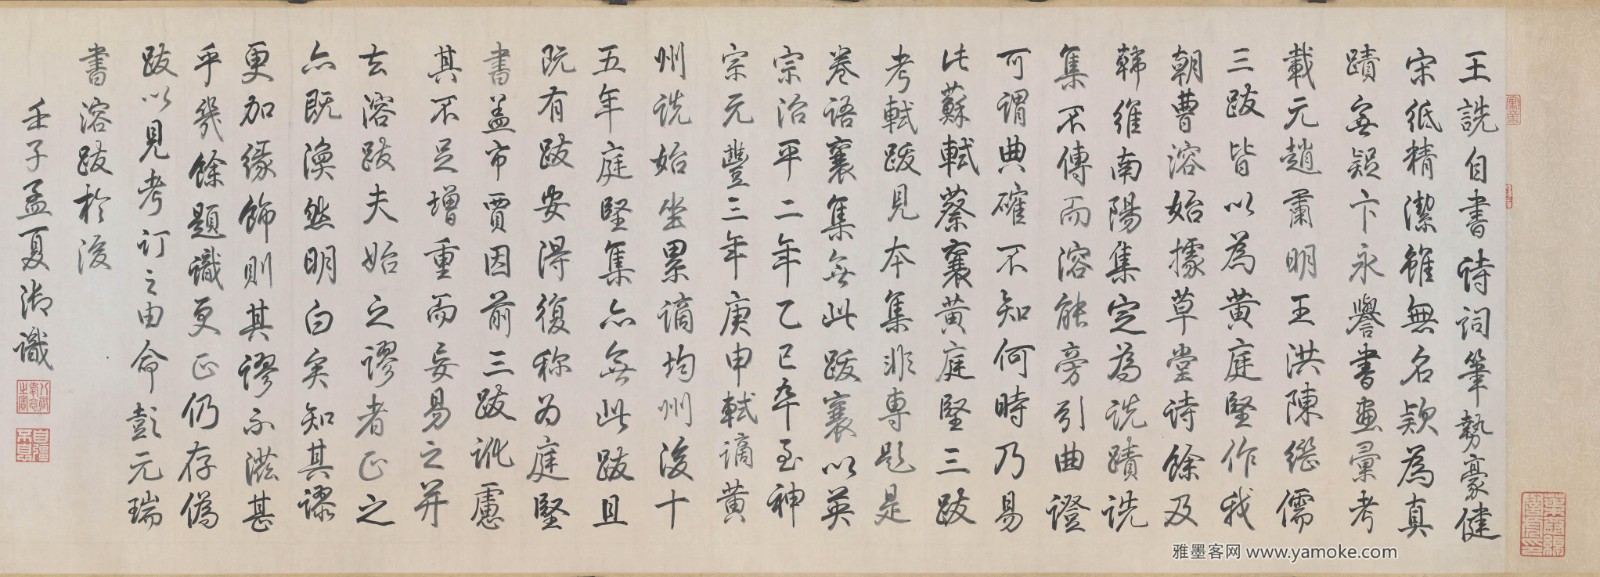 王詵自書詩詞筆勢豪健
宋紙精潔雖無名款為真
蹟無疑卞永譽書畫彙考
載元趙肅明王洪陳繼儒
三跋皆以為黃庭堅作我
朝曹溶始據草堂詩餘及
韓維南陽集定為詵蹟詵
集不傳而溶能旁引曲證
可謂典確不知何時乃易
比蘇軾蔡襄黃庭堅三跋
考軾跋見本集非專題是
卷語襄集無此跋襄以英
宗治平二年乙巳卒至神
宗元豐三年庚申軾謫黃
州詵始坐累謫均州後十
五年庭堅集亦無此跋且
既有跋安得復称為庭堅
書益市賈因前三跋訛慮
其不足增重而妄易之并
去溶跋夫始之謬者正之
亦既渙然明白矣知其謬
更加緣飾則其謬不滋甚
乎幾餘題識更正仍存偽
跋以見考訂之由命彭元瑞
書溶跋於後
壬子孟夏御識
八徵耄念之寶
自彊不息
雅墨客网 www.yamoke.com